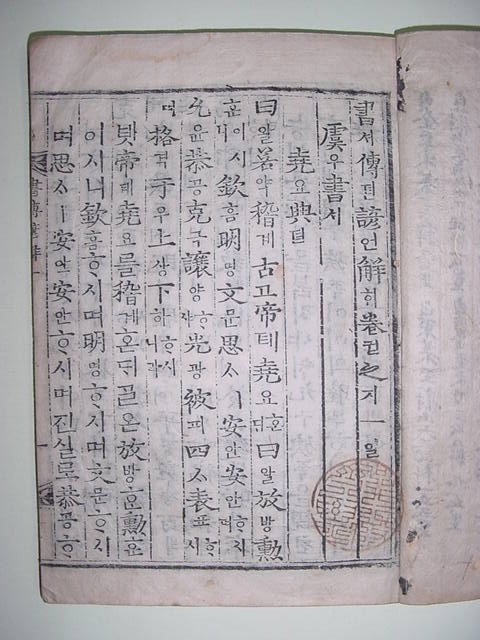 書셔傳뎐諺언解ᄒᆡ卷권之지一일
虞우書셔
堯요典뎐
曰왈若약稽계古고帝뎨堯요혼ᄃᆡ曰왈放방勳
훈이시니欽흠明명文문思ᄉᆞㅣ安안安안ᄒᆞ시며
允윤恭공克극讓양ᄒᆞ샤光광被피四ᄉᆞ表표ᄒᆞ시
며格격于우上샹下하ᄒᆞ시니라
녯帝뎨堯요를稽계혼ᄃᆡᄀᆞᆯ온放방ᄒᆞᆫ勳훈
이시니欽흠ᄒᆞ시며明명ᄒᆞ시며文문ᄒᆞ시
며思ᄉᆞㅣ安안安안ᄒᆞ시며진실로恭공ᄒᆞ